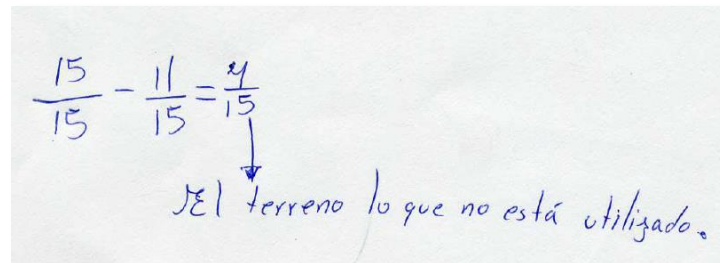 15/15 - 11/15 = 4/15
El terreno lo que no está utilizado.